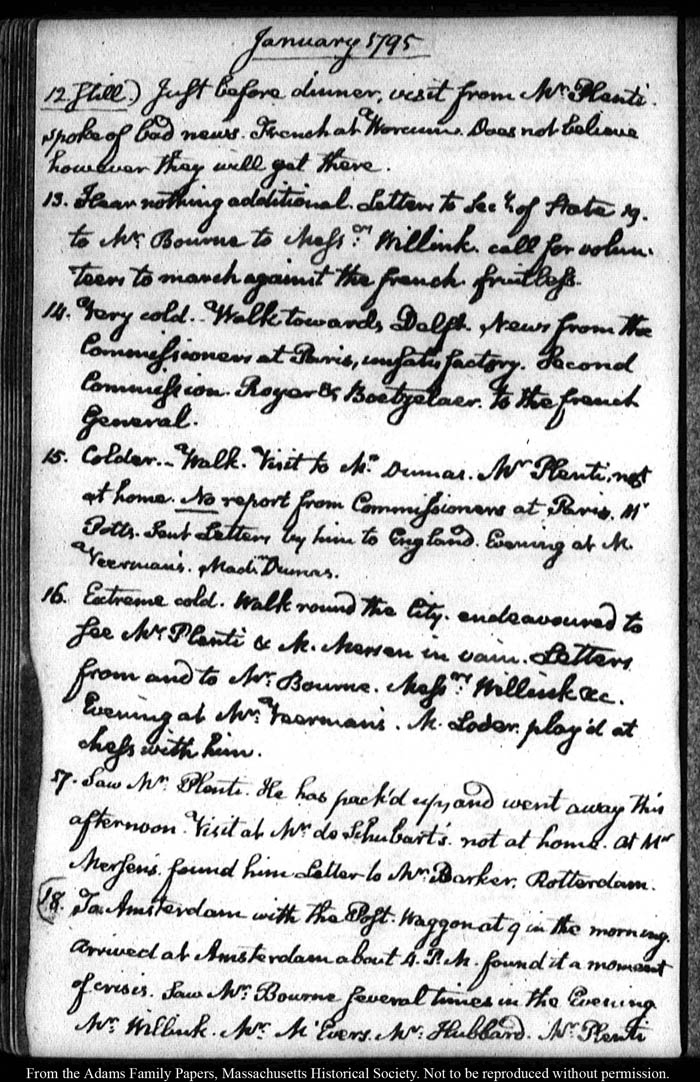 January 1795
12 Still.) Just before dinner, visit from Mr. Plenti.
spoke of bad news. French at Worcum. Does not believe
however they will get there.
13. Hear nothing additional. Letters to Secy. of State 19.
to Mr. Bourne to Messrs. Willink. call for volun-
teers to march against the french. fruitless.
14. Very cold.. Walk towards Delft. News from the
Commissioners at Paris, unsatisfactory. Second
Commission. Royer & Boetzelaer. to the french
General.
15. Colder.. Walk. Visit to Mr. Dumas. Mr. Plenti, not
at home. No report from Commissioners at Paris. Mr
Potts. Sent Letters by him to England. Evening at M.
Veerman's. Madm. Dumas.
16. Extreme cold. Walk round the City. endeavoured to
see Mr. Plenti & M. Mersen in vain. Letters
from and to Mr. Bourne. Messrs. Willink &c.
Evening at Mr. Veerman's. M. Loder. play'd at
chess with him.
17. Saw Mr. Plenti. He has pack'd up, and went away this
afternoon. Visit at Mr. de Schubart's. not at home. at Mr
Mersen's. found him Letter to Mr. Barker. Rotterdam.
18. To Amsterdam with the Post-Waggon at 9 in the morning.
arrived at Amsterdam about 4. P.M. found it a moment
of crisis. Saw Mr. Bourne several times in the Evening
Mr. Willink. Mr. M'Evers. Mr. Hubbard. Mr. Plenti
From the Adams Family Papers, Massachusetts Historical Society. Not to be reproduced without permission.